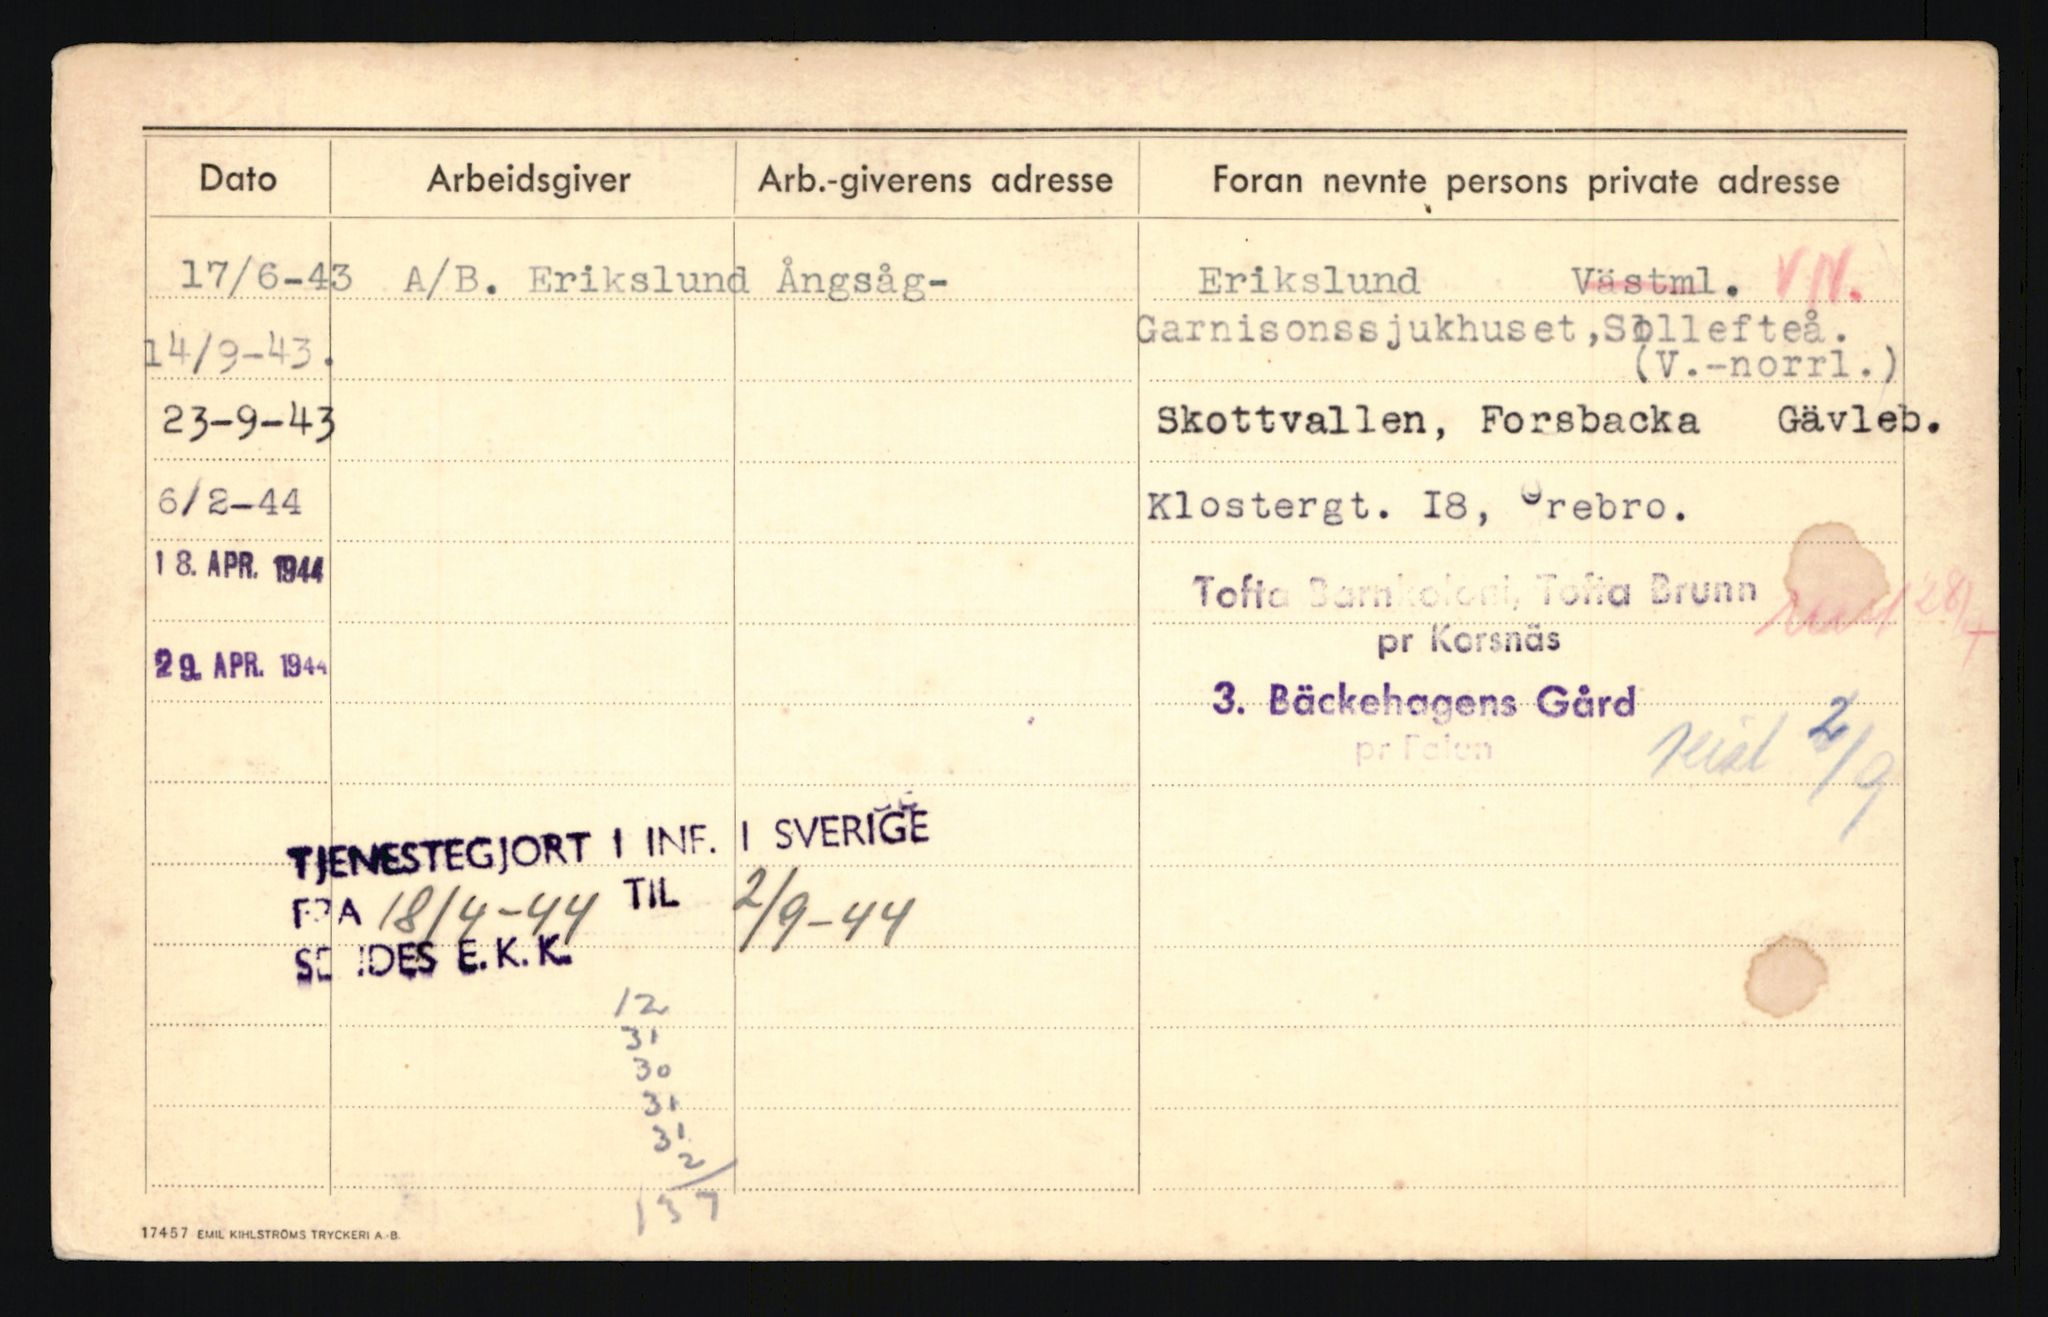 Dato Arbeidsgiver Arb.-giverens adresse Foran nevnte persons private adresse
17/6-43 A/B. Erikslund Ångsåg- Erikslund Västml. VN.
14/9-43. Garnisonssjukhuset, Sollefteå.
(V.-norrl.)
23-9-43 Skottvallen, Forsbacka Gävleb.
6/2-44 Klostergt. I8, Örebro.
18. APR. 1944 Tofta Barnkoloni, Tofta Brunn
28/4
pr Korsnäs
29. APR. 1944 3. Bäckehagens Gård
pr Falun reist 2/9
TJENESTEGJORT I INF. I SVERIGE
FRA 18/4-44 TIL 2/9-44
SENDES E. K. K.
12
31
30
31
31
2
137
17457 EMIL KIHLSTRÖMS TRYCKERI A.-B.